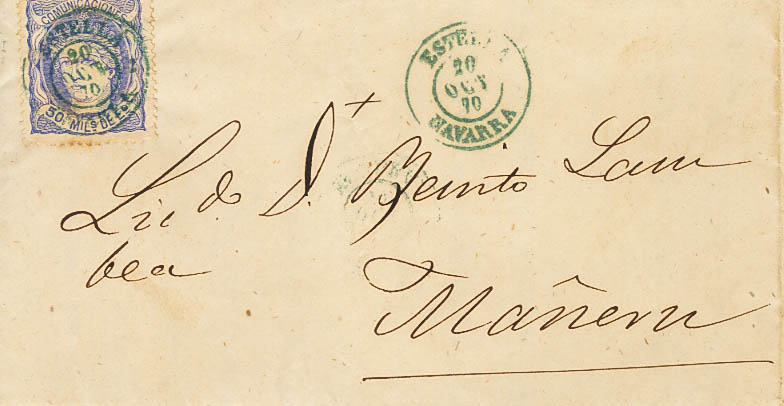 COMUNICACIONES
ESTELLA
20
OCT
70
50 MILS DE ESC
ESTELLA
20
OCT
70
NAVARRA
Licdo D. Benito Lam
bea
Mañeru